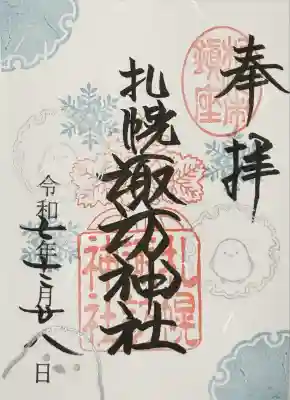 奉拝
鎮座
札幌諏訪神社
札幌
諏訪
神社
令和七年十二月廿八日